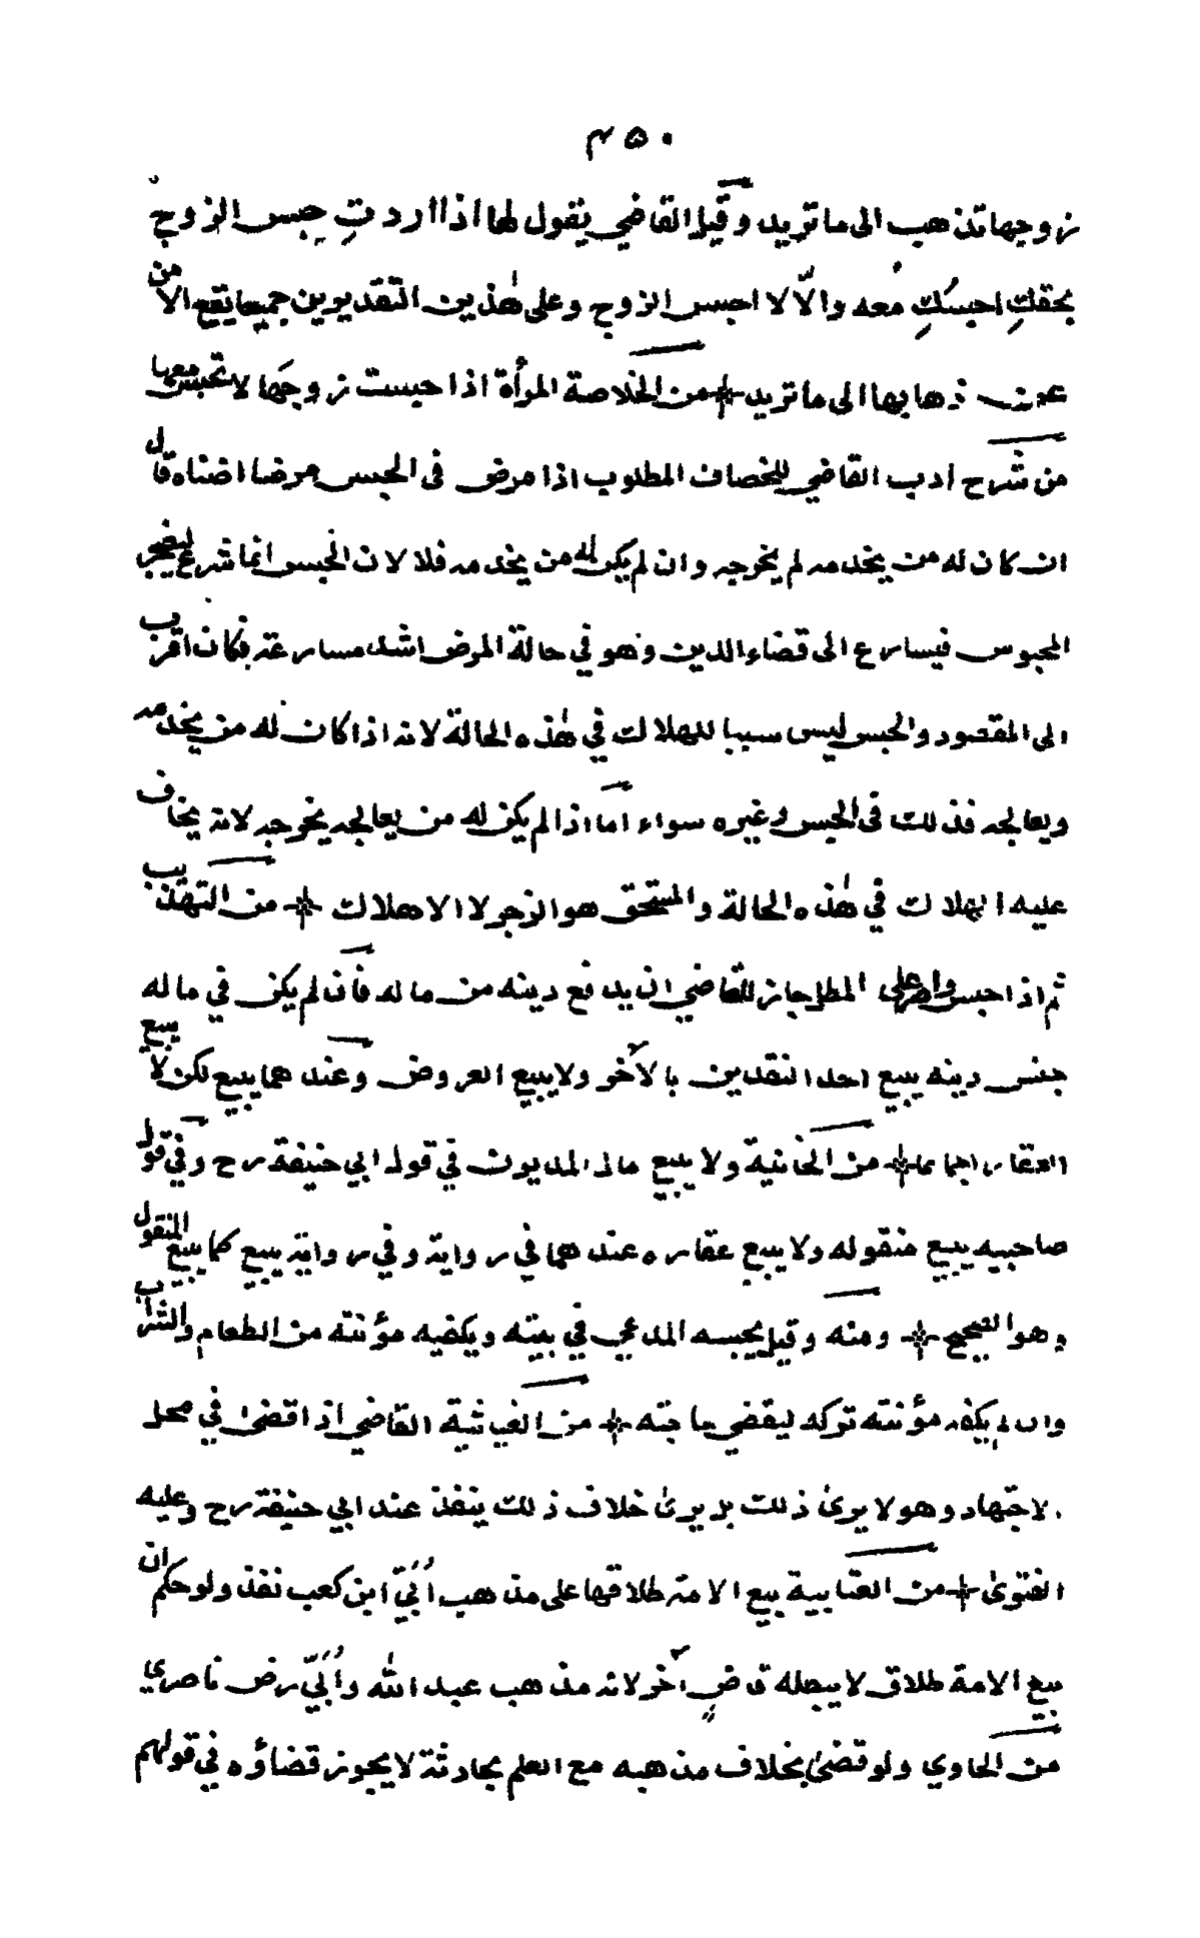 ٤٥٠
زوجها تذهب الى ما تريد وقيل القاضي يقول لها اذا اردتِ حبس الزوج
بحقكِ احبسكِ معه والّا لا احبس الزوج وعلى هٰذين التقديرين جميعا يقع الامن
عن ذهابها الى ما تريد من الخلاصة المرأة اذا حبست زوجَها لا تحبس معها
من شرح ادب القاضي للخصاف المطلوب اذا مرض فى الحبس مرضا اضناه قال
ان كان له من يخدمه لم يخرجه وان لم يكن له من يخدمه فلا لان الحبس انما شرع ليضجر
المحبوس فيسارع الى قضاء الدين وهو في حالة المرض اشد مسارعة فكان اقرب
الى المقصود والحبس ليس سببا للهلاك في هٰذه الحالة لانه اذا كان له من يخدمه
ويعالجه فذلك فى الحبس وغيره سواء اما اذا لم يكن له من يعالجه يخرجه لانه يخاف
عليه الهلاك في هٰذه الحالة والمستحق هو الزجر لا الاهلاك من التهذيب
ثم اذا حبس واصر على المطل جاز للقاضي ان يدفع دينه من ماله فان لم يكن في ماله
جنس دينه يبيع احد النقدين بالآخر ولا يبيع العروض وعندهما يبيع لكن لا يبيع
العقار اجماعا من الخانية ولا يبيع مال المديون في قول ابي حنيفة رح وفي قول
صاحبيه يبيع منقوله ولا يبيع عقاره عندهما في رواية وفي رواية يبيع كما يبيع المنقول
وهو الصحيح ومنه وقيل يحبسه المدعي في بيته ويكفيه مؤنته من الطعام والشراب
وان لم يكفه مؤنته تركه ليقضي حاجته من الغياثية القاضي اذا قضىٰ في محل
الاجتهاد وهو لا يرىٰ ذلك بل يرىٰ خلاف ذلك ينفذ عند ابي حنيفة رح وعليه
الفتوىٰ من العتابية بيع الامة طلاقها على مذهب اُبَيّ ابن كعب نفذ ولو حكم ان
بيع الامة طلاق لا يبطله قاضٍ آخر لانه مذهب عبد الله واُبَيّ رض ناصري
من الحاوي ولو قضىٰ بخلاف مذهبه مع العلم بحادثة لا يجوز قضاؤه في قولهم